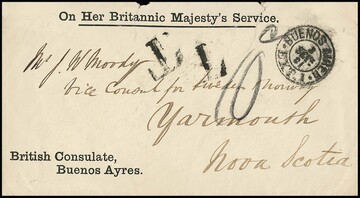 On Her Britannic Majesty's Service.
Mr J. W. Moody
Vice Consul for Sweden & Norway
10
Yarmouth
Nova Scotia
British Consulate,
Buenos Ayres.
BUENOS AIRES